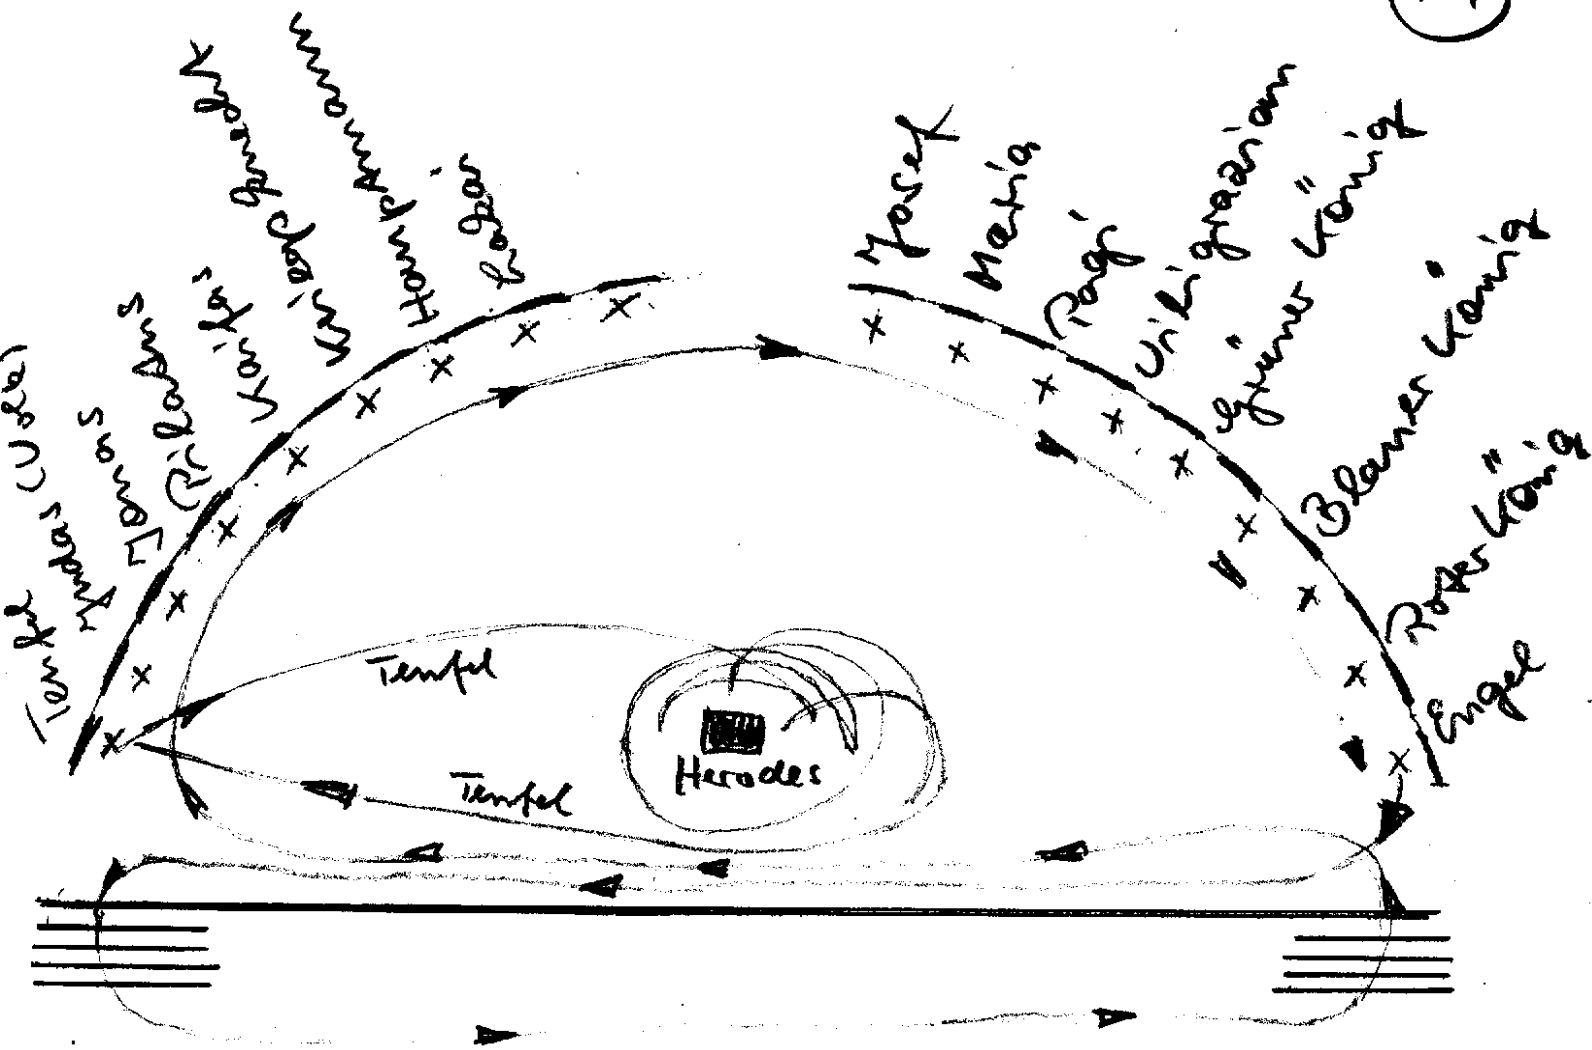 Teufel
Judas (Volk)
Jonas
Pilatus
Kaifas
Kriegsknecht
Hauptmann
Lakai
Josef
Maria
Pagi
Grüner König
Blauer König
Roter König
Engel
Teufel
Teufel
Herodes